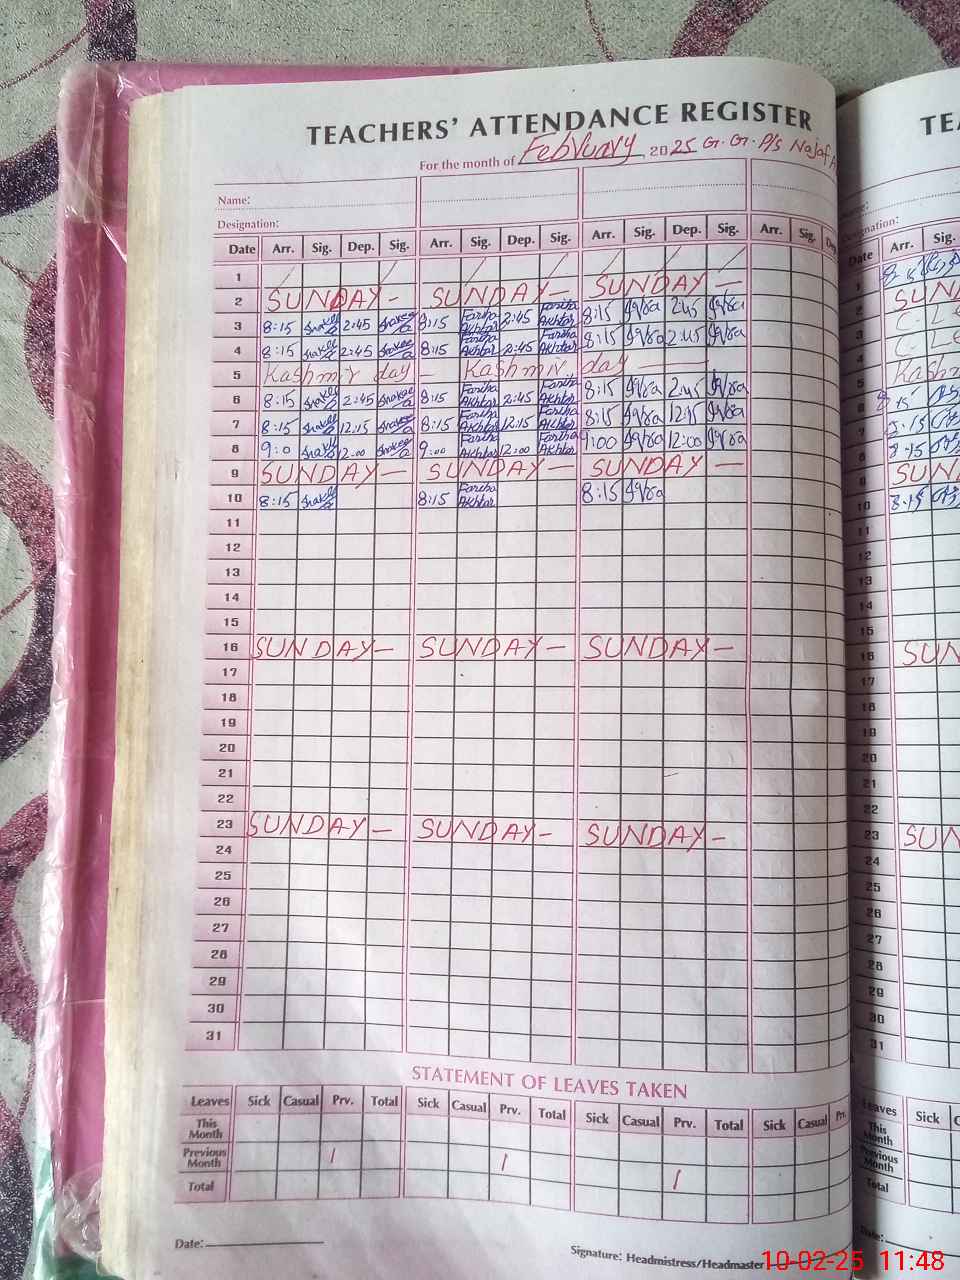 TEACHERS' ATTENDANCE REGISTER TE
For the month of February 2025 G. G. P/S Najaf
Name:
Designation: Designation:
Date Arr. Sig. Dep. Sig. Arr. Sig. Dep. Sig. Arr. Sig. Dep. Sig. Arr. Sig. Date Arr. Sig.
1 1
2 SUNDAY - SUNDAY - SUNDAY - SUN
3 8:15 Shakeela 2:45 Shakeela 8:15 Fariha Akhtar 2:45 Fariha Akhtar 8:15 Iqra 2:45 Iqra
4 8:15 Shakeela 2:45 Shakeela 8:15 Fariha Akhtar 2:45 Fariha Akhtar 8:15 Iqra 2:45 Iqra
5 Kashmir day - Kashmir day Kash
6 8:15 Shakeela 2:45 Shakeela 8:15 Fariha Akhtar 2:45 Fariha Akhtar 8:15 Iqra 2:45 Iqra
7 8:15 Shakeela 12:15 Shakeela 8:15 Fariha Akhtar 12:15 Fariha Akhtar 8:15 Iqra 12:15 Iqra
8 9:0 Shakeela 12:00 Shakeela 9:00 Fariha Akhtar 12:00 Fariha Akhtar 9:00 Iqra 12:00 Iqra
9 SUNDAY - SUNDAY - SUNDAY - 9 SUN
10 8:15 Shakeela 8:15 Fariha Akhtar 8:15 Iqra 10 8:15
11 11
12 12
13 13
14 14
15 15
16 SUNDAY - SUNDAY - SUNDAY - 16 SUN
17 17
18 18
19 19
20 20
21 21
22 22
23 SUNDAY - SUNDAY - SUNDAY - 23 SUN
24 24
25 25
26 26
27 27
28 28
29 29
30 30
31 31
STATEMENT OF LEAVES TAKEN
Leaves Sick Casual Prv. Total Sick Casual Prv. Total Sick Casual Prv. Total Sick Casual Prv. Leaves Sick
This Month This Month
Previous Month 1 1 1 Previous Month
Total Total
Date: Signature: Headmistress/Headmaster Date:
10-02-25 11:48